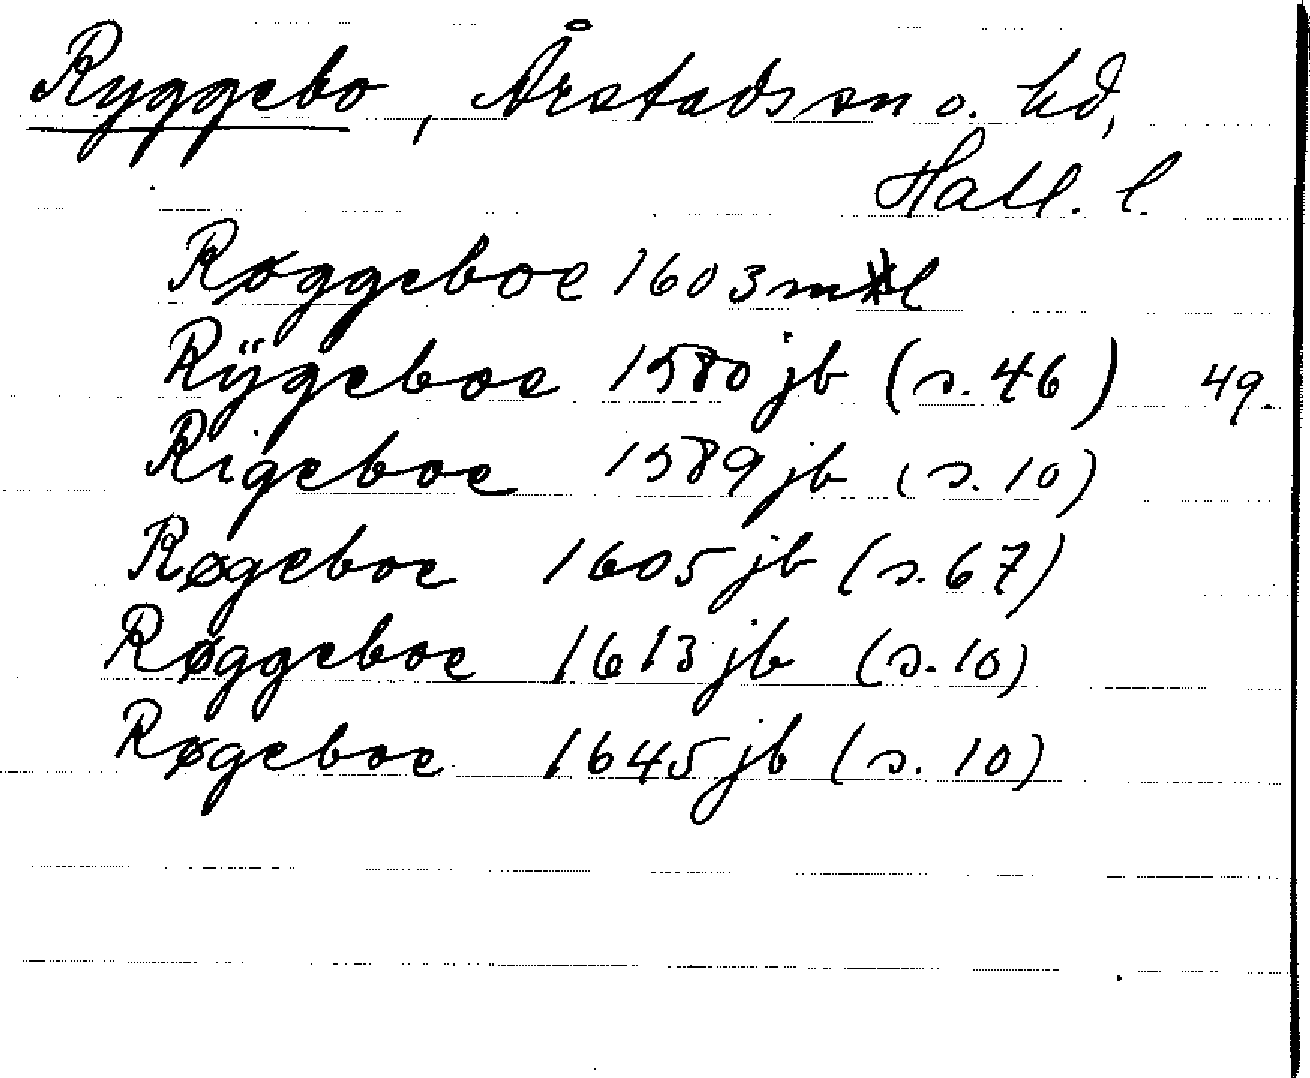 Ryggebo, Årstads sn o. hd,
Hall. l.
Røggeboe 1603 ml
Rÿgeboe 1580 jb (s. 46) 49.
Rigeboe 1589 jb (s. 10)
Røgeboe 1605 jb (s. 67)
Røggeboe 1613 jb (s. 10)
Røgeboe 1645 jb (s. 10)